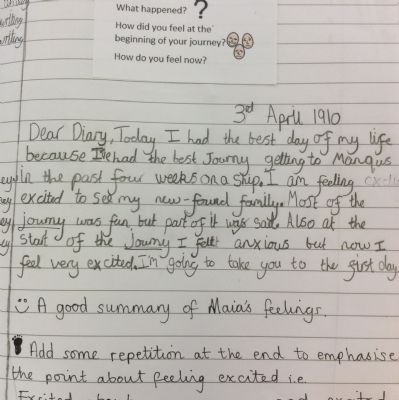 What happened? ?
How did you feel at the
beginning of your journey?
How do you feel now?
writing
writing
3rd April 1910
Dear Diary, Today I had the best day of my life
because I've had the best Journy getting to Manaus
in the past four weeks on a ship. I am feeling
excited to see my new-found family. Most of the
journy was fun, but part of it was sad. Also at the
start of the Journy I felt anxious but now I
feel very excited. I'm going to take you to the first day
A good summary of Maia's feelings.
Add some repetition at the end to emphasise
the point about feeling excited i.e.